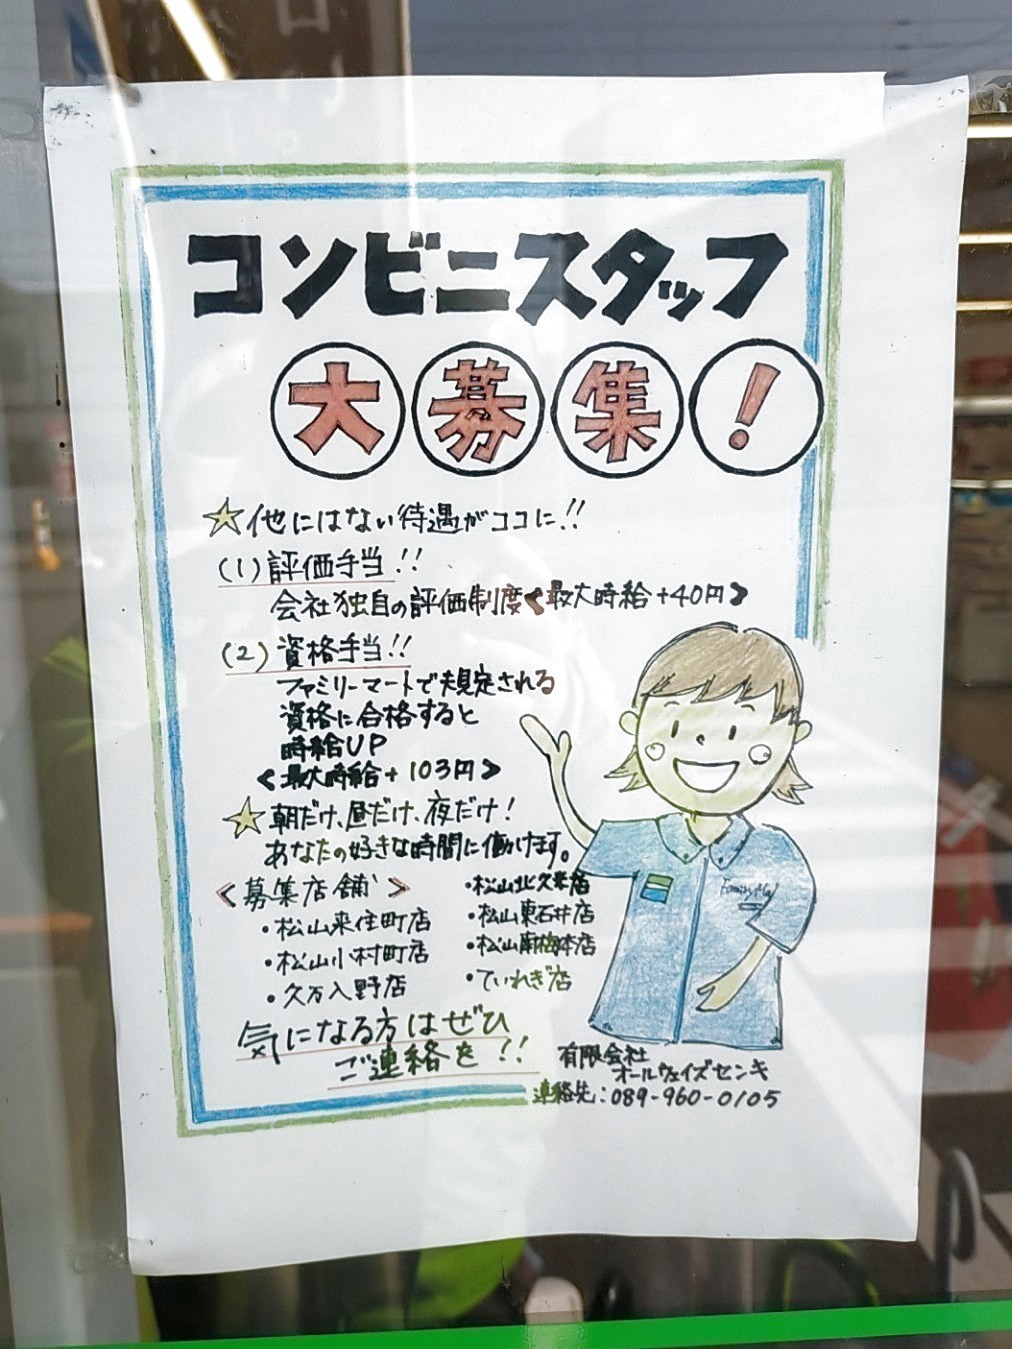 コンビニスタッフ
大募集!
☆他にはない待遇がココに!!
(1)評価手当!!
会社独自の評価制度<最大時給+40円>
(2)資格手当!!
ファミリーマートで規定される
資格に合格すると
時給UP
<最大時給+103円>
☆朝だけ、昼だけ、夜だけ!
あなたの好きな時間に働けます。
<募集店舗>
・松山来住町店
・松山小村町店
・久万入野店
・松山北久米店
・松山東石井店
・松山南梅本店
・ていれぎ店
気になる方はぜひ
ご連絡を!!
FamilyMart
有限会社
オールウェイズセンキ
連絡先:089-960-0105